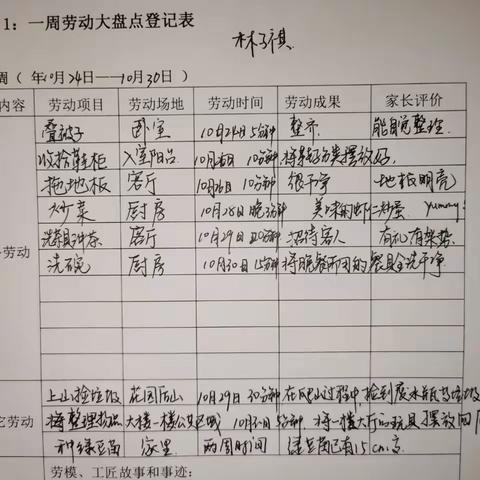 1：一周劳动大盘点登记表
林子祺
周（ 年10月24日——10月30日）
内容 劳动项目 劳动场地 劳动时间 劳动成果 家长评价
叠被子 卧室 10月24日 5分钟 整齐 能自觉整理.
收拾鞋柜 入室阳台 10月 日 10分钟 将鞋子 类摆放好,
拖地板 客厅 10月 日 10分钟 很干净 地板明亮
炒菜 厨房 10月28日 晚 分钟 美味的虾仁炒蛋 yummy!
劳动 洗茶具冲茶 客厅 10月29日 20分钟 招待客人 有礼有架势
洗碗 厨房 10月30日 15分钟 将晚餐所用的餐具全洗干净
上山捡垃圾 花园后山 10月29日 30分钟 在爬山过程中,捡到废水瓶 垃圾
它劳动 整理物品 大楼一楼公共区域 10月 日 5分钟 将一楼大厅 玩具摆放回
种绿豆苗 家里 两周时间 绿豆苗已有15cm高
劳模、工匠故事和事迹：